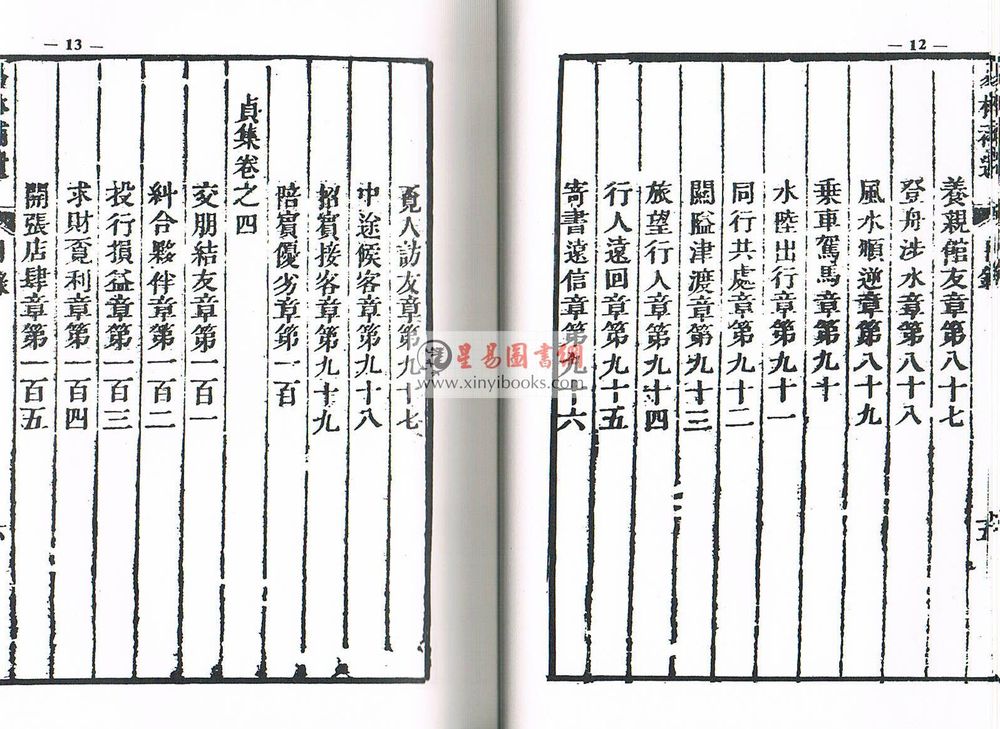 — 12 —
易林補遺 目錄 十五
養親館友章第八十七
登舟涉水章第八十八
風水順逆章第八十九
乗車駕馬章第九十
水陸出行章第九十一
同行共處章第九十二
關隘津渡章第九十三
旅望行人章第九十四
行人遠回章第九十五
寄書遠信章第九十六
— 13 —
覓人訪友章第九十七
中途候客章第九十八
招賓接客章第九十九
陪賓優劣章第一百
貞集卷之四
交朋結友章第一百一
糾合夥伴章第一百二
投行損益章第一百三
求財覓利章第一百四
開張店肆章第一百五
星易圖書網
www.xinyibooks.com